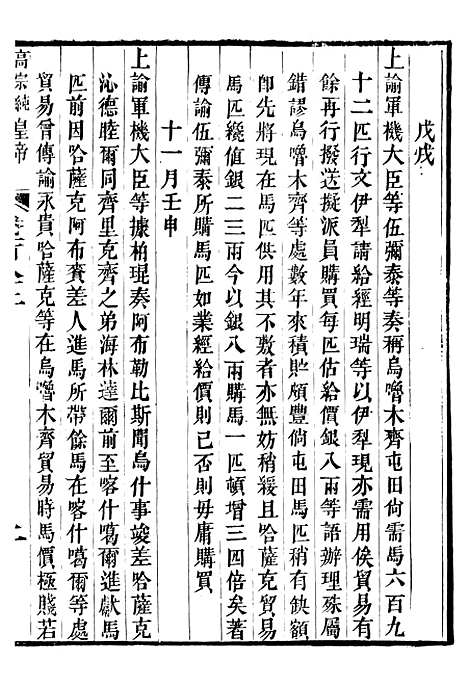 戊戌
上諭軍機大臣等伍彌泰等奏稱烏嚕木齊屯田尙需馬六百九
十二匹行文伊犁請給經明瑞等以伊犁現亦需用俟貿易有
餘再行撥送擬派員購買每匹估給價銀八兩等語辦理殊屬
錯謬烏嚕木齊等處數年來積貯頗豐倘屯田馬匹稍有缺額
卽先將現在馬匹供用其不敷者亦無妨稍緩且哈薩克貿易
馬匹纔值銀二三兩今以銀八兩購馬一匹頓增三四倍矣著
傳諭伍彌泰所購馬匹如業經給價則已否則毋庸購買
十一月壬申
上諭軍機大臣等據柏琨奏阿布勒比斯聞烏什事竣差哈薩克
沁德睦爾同齊里克齊之弟海林達爾前至喀什噶爾進獻馬
匹前因哈薩克阿布賚差人進馬所帶餘馬在喀什噶爾等處
貿易曾傳諭永貴哈薩克等在烏嚕木齊貿易時馬價極賤若
高宗純皇帝